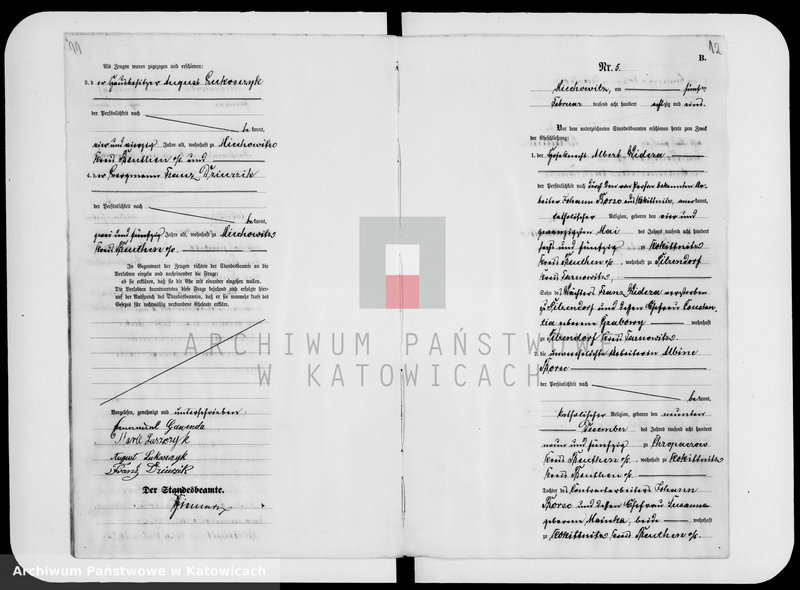 11
Als Zeugen waren zugezogen und erschienen:
3. der Hausbesitzer August Lukosczyk
der Persönlichkeit nach
bekannt,
vier und vierzig Jahre alt, wohnhaft zu Miechowitz
Kreis Beuthen o/s. und
4. der Bergmann Franz Dziurzik
der Persönlichkeit nach
bekannt,
zwei und fünfzig Jahre alt, wohnhaft zu Miechowitz
Kreis Beuthen o/s.
In Gegenwart der Zeugen richtete der Standesbeamte an die
Verlobten einzeln und nacheinander die Frage:
ob sie erklären, daß sie die Ehe mit einander eingehen wollen.
Die Verlobten beantworteten diese Frage bejahend und erfolgte hier-
auf der Ausspruch des Standesbeamten, daß er sie nunmehr kraft des
Gesetzes für rechtmäßig verbundene Eheleute erkläre.
Vorgelesen, genehmigt und unterschrieben:
Emanuel Gawenda
August Lukosczyk
Franz Dziurzik
Der Standesbeamte.
12
B.
Nr. 5.
Miechowitz, am fünften
Februar tausend acht hundert achtzig und eins.
Vor dem unterzeichneten Standesbeamten erschienen heute zum Zweck
der Eheschließung:
1. der Hofeknecht Albert Widera
der Persönlichkeit nach durch den von Person bekannten Ar-
beiter Johann Korzec aus Rokittnitz, anerkannt,
katholischer Religion, geboren den vier und
zwanzigsten Mai des Jahres tausend acht hundert
sechs und fünfzig zu Rokittnitz
Kreis Beuthen o/s., wohnhaft zu Ptkendorf
Kreis Tarnowitz,
Sohn des Wächters Franz Widera verstorben
zu und dessen Ehefrau Constan-
tia geborene Grabowy wohnhaft
zu Kreis Tarnowitz.
2. die unverehelichte Arbeiterin Albine
Korzec
der Persönlichkeit nach
bekannt,
katholischer Religion, geboren den neunten
Dezember des Jahres tausend acht hundert
neun und fünfzig zu Chropaczow
Kreis Beuthen o/s., wohnhaft zu Rokittnitz
Kreis Beuthen o/s.
Tochter des Contractarbeiters Johann
Korzec und dessen Ehefrau Susanna
geborene Mainka, beide wohnhaft
zu Rokittnitz Kreis Beuthen o/s.
ARCHIWUM PAŃSTWOWE
W KATOWICACH
Archiwum Państwowe w Katowicach